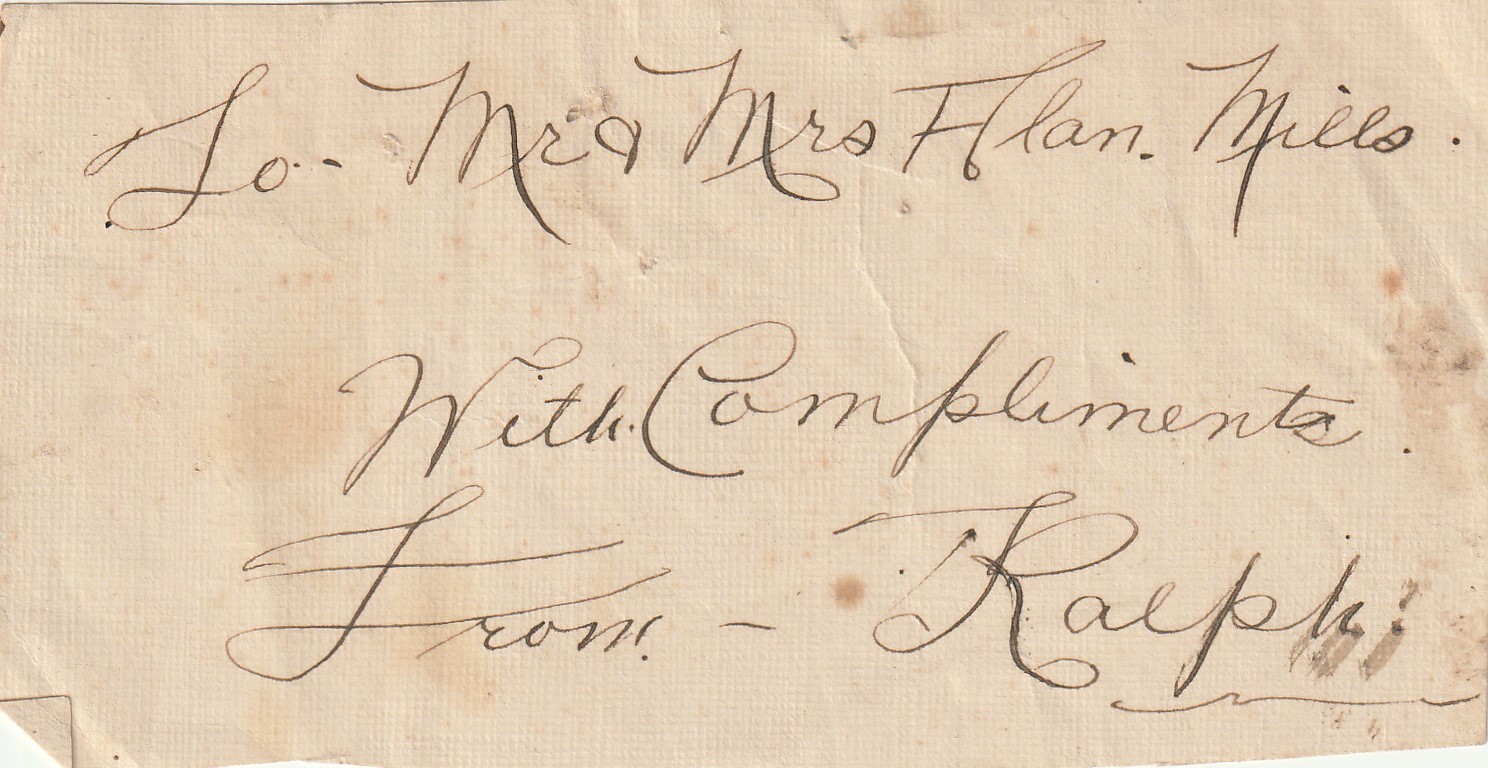 To - Mr & Mrs Alan. Mills.
With Compliments.
From. - Ralph.